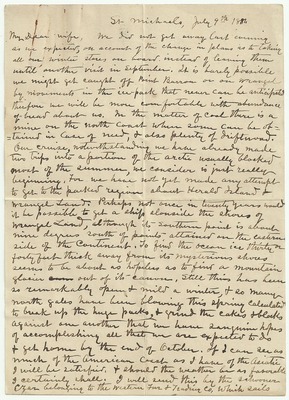 St. Michaels, July 9th 1881
My dear wife, We did not get away last evening
as we expected, on account of the change in plans as to taking
all our winter stores on board instead of leaving them
until another visit in September. It is barely possible
we might get caught off Point Barrow or on Wrangel
by movements in the ice-pack that never can be anticipated
therefore we will be more comfortable with abundance
of bread about us. In the matter of coal there is a
mine on the north coast where some can be ob-
tained in case of need, & also plenty of driftwood.
Our cruise, notwithstanding we have already made
two trips into a portion of the Arctic usually blocked
most of the summer, we consider is just really
beginning. For we have not yet made any attempt
to get to the packed region about Herald Island &
Wrangel Land. Perhaps not once in twenty years would
it be possible to get a ship alongside the shores of
Wrangel Land, although its southern point is about
nine degrees south of points attained on the eastern
side of the Continent. To find the ocean ice thirty or
forty feet thick away from its mysterious shores
seems to be about as hopeless as to find a mountain
glacier out of its canon. Still this has been
so remarkably open & mild a winter, & so many
north gales have been blowing this spring calculated
to break up the huge packs, & grind the cakes & blocks
against one another that we have sanguine hopes
of accomplishing all that we are expected to do
& get home by the end of October. If I can see as
much of the American Coast as I have of the Asiatic
I will be satisfied, & should the weather be as favorable
I certainly shall. I will send this by the schooner
Czar belonging to the Western Fur & Trading Co. Which sails